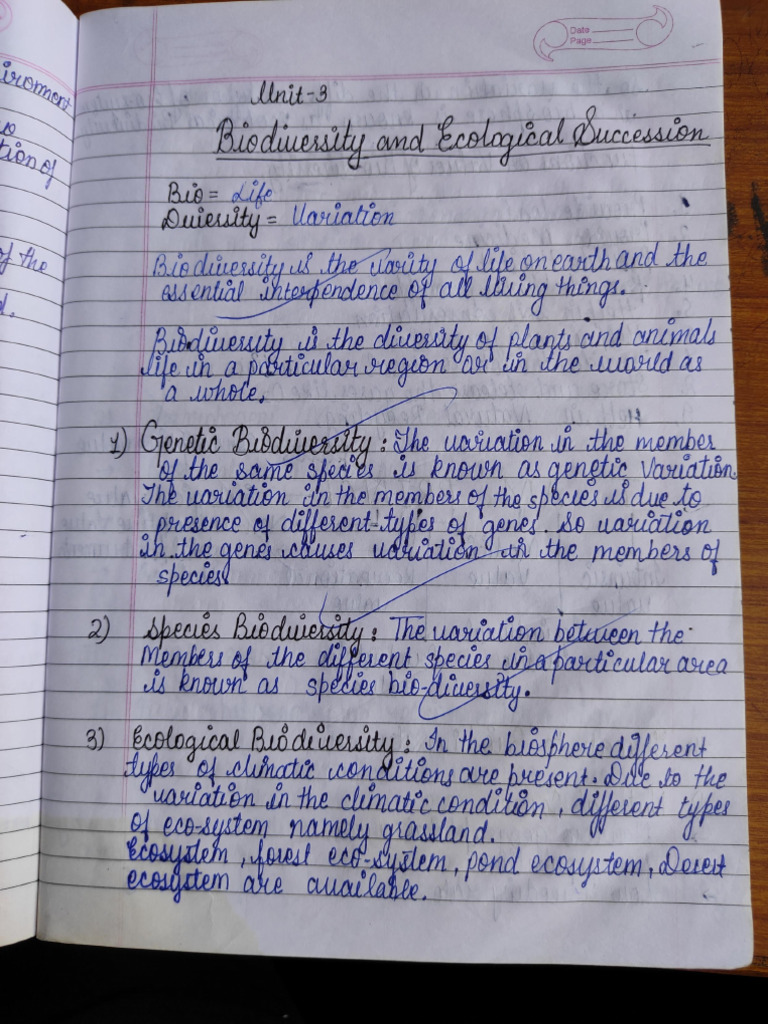 Date
Page
iroment
tion of
of the
d.
Unit-3
Biodiversity and Ecological Succession
Bio = Life
Diversity = Variation
Biodiversity is the varity of life on earth and the
essential interpendence of all living things.
Biodiversity is the diversity of plants and animals
life in a particular region or in the world as
a whole.
1) Genetic Biodiversity : The variation in the member
of the same species is known as genetic Variation.
The variation in the members of the species is due to
presence of different types of genes. So variation
in the genes causes variation in the members of
species.
2) Species Biodiversity : The variation between the
Members of the different species in a particular area
is known as species bio-diversity.
3) Ecological Biodiversity : In the biosphere different
types of climatic conditions are present. Due to the
variation in the climatic condition, different types
of eco-system namely grassland.
Ecosystem, forest eco-system, pond ecosystem, Desert
ecosystem are available.